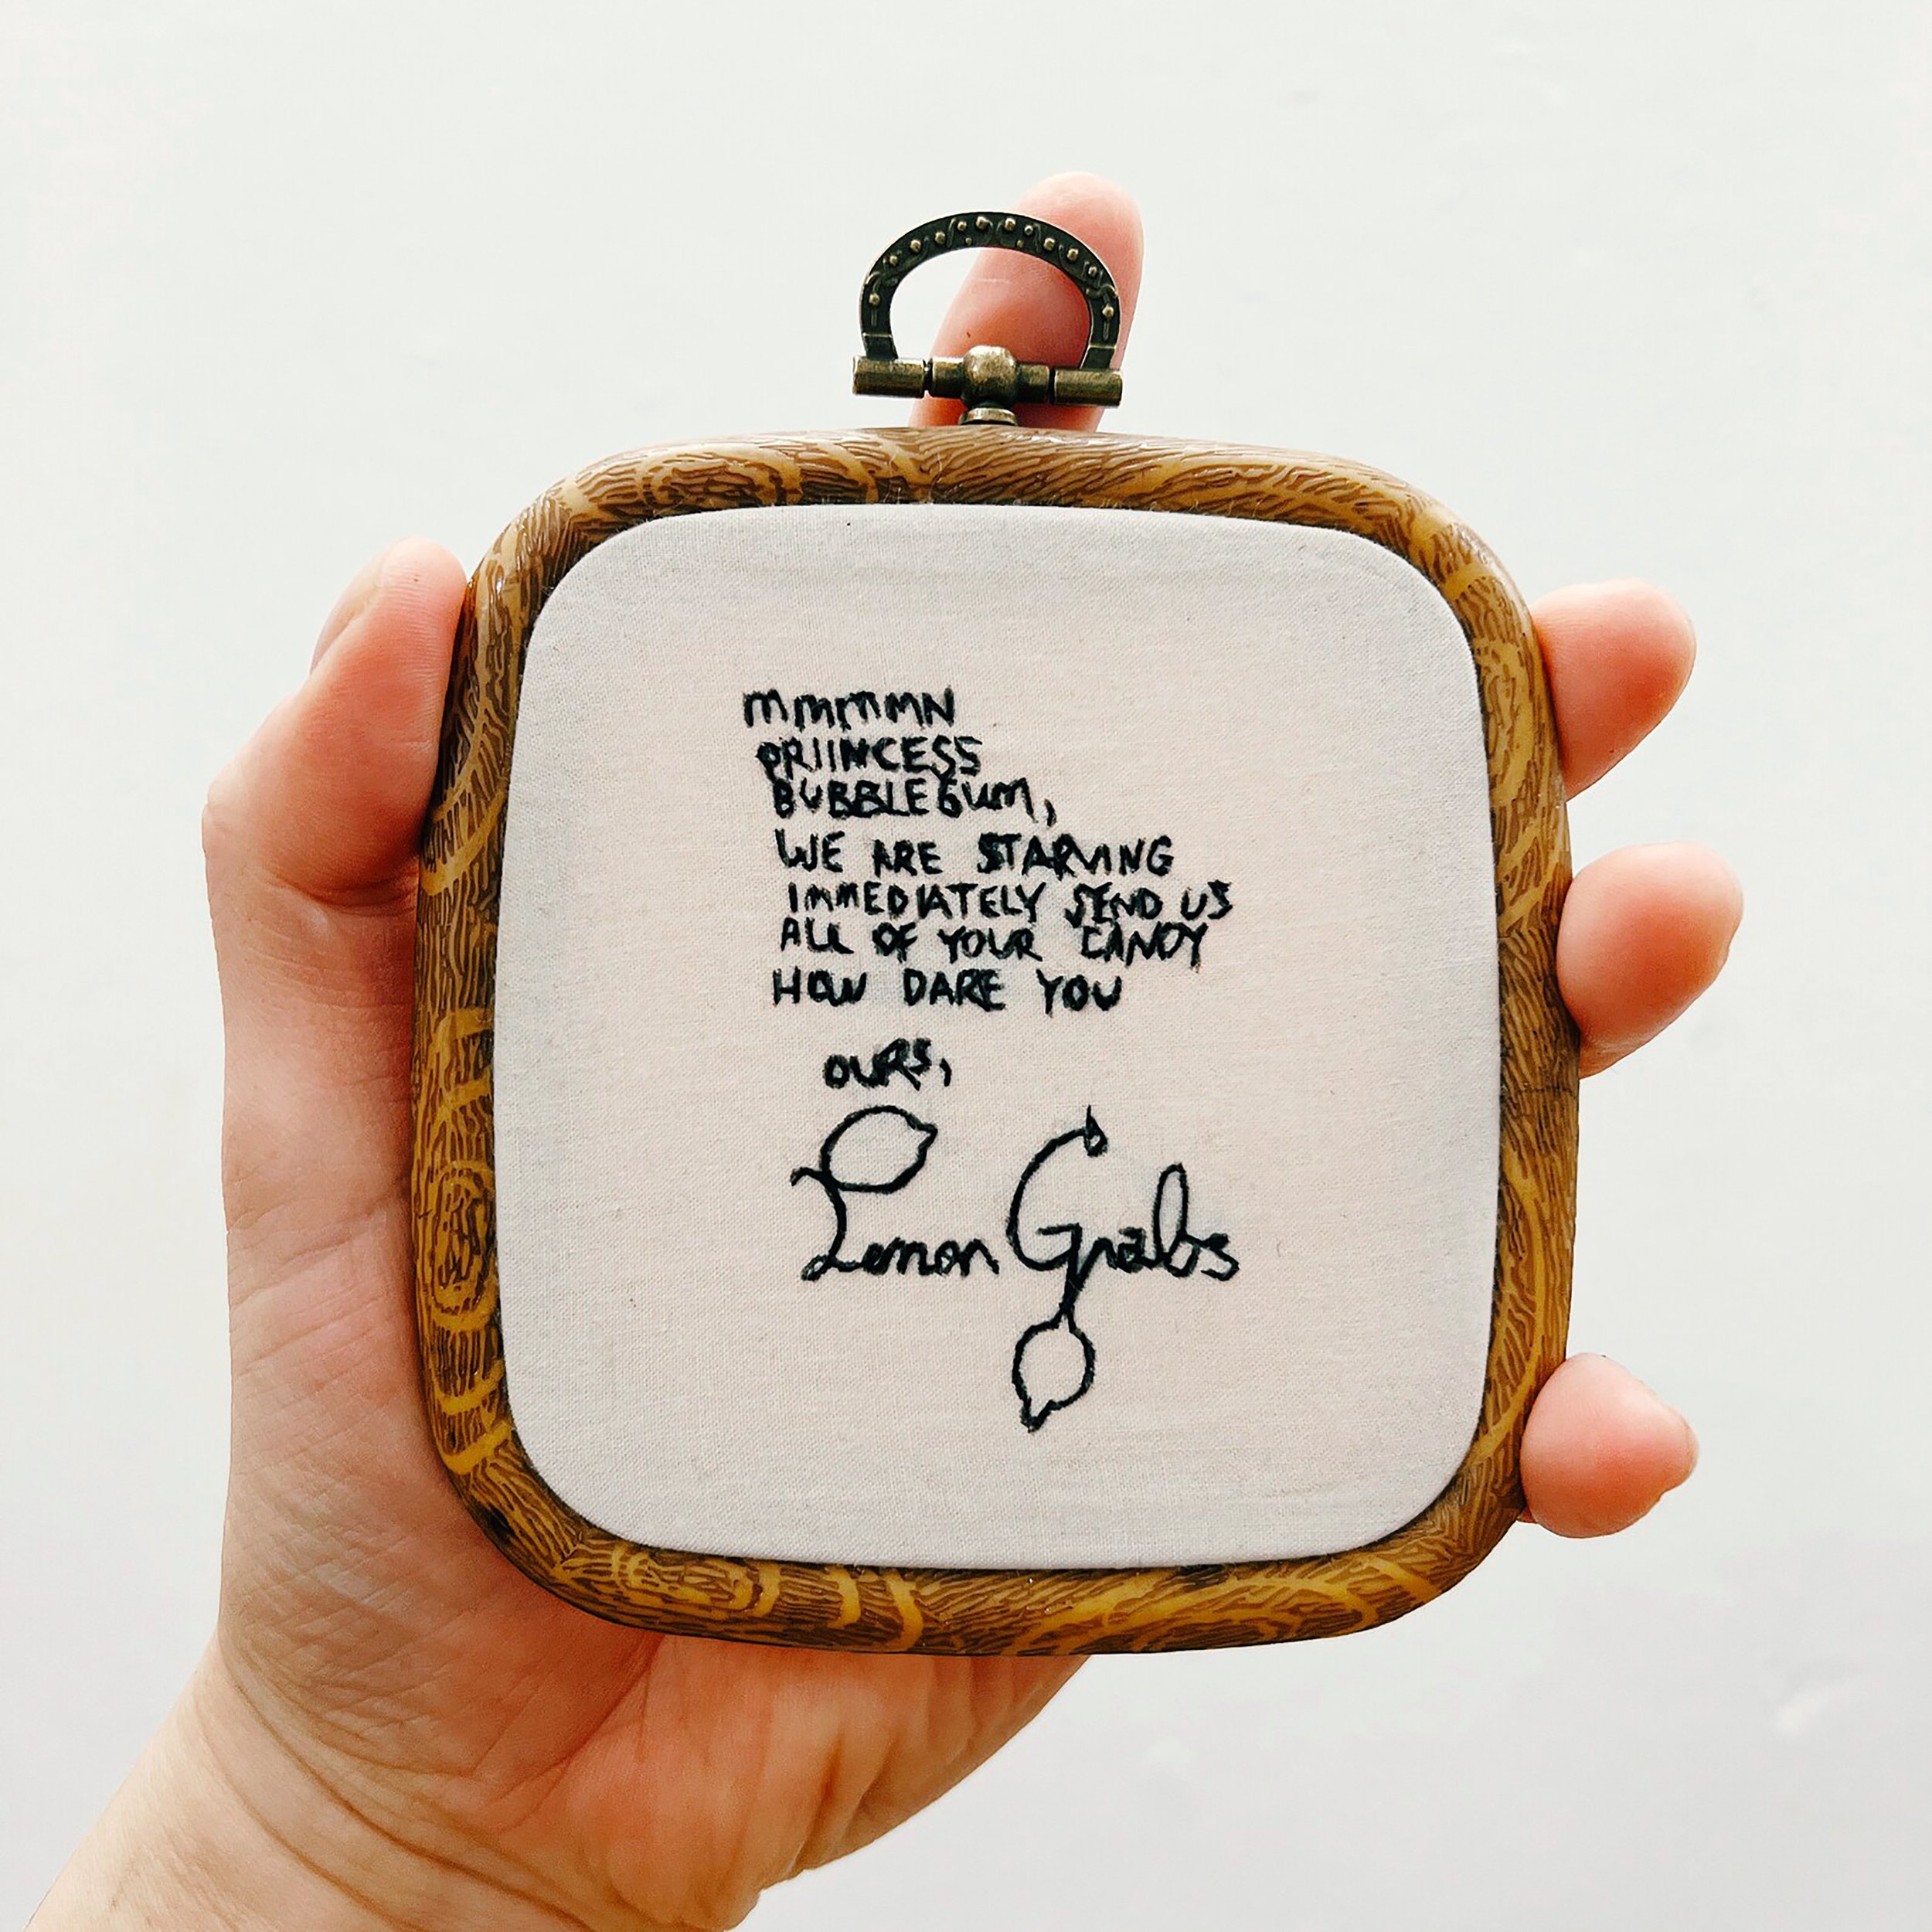 MMMMMN
PRIINCESS
BUBBLEGUM,
WE ARE STARVING
IMMEDIATELY SEND US
ALL OF YOUR CANDY
HOW DARE YOU
OURS,
Lemon Grabs